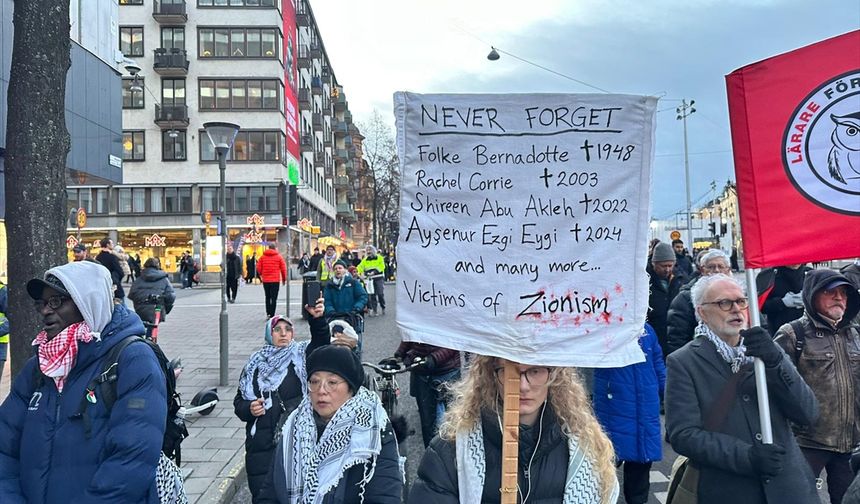 NEVER FORGET
Folke Bernadotte ✝1948
Rachel Corrie ✝2003
Shireen Abu Akleh ✝2022
Ayşenur Ezgi Eygi ✝2024
and many more...
Victims of Zionism
LÄRARE FÖR
MAX